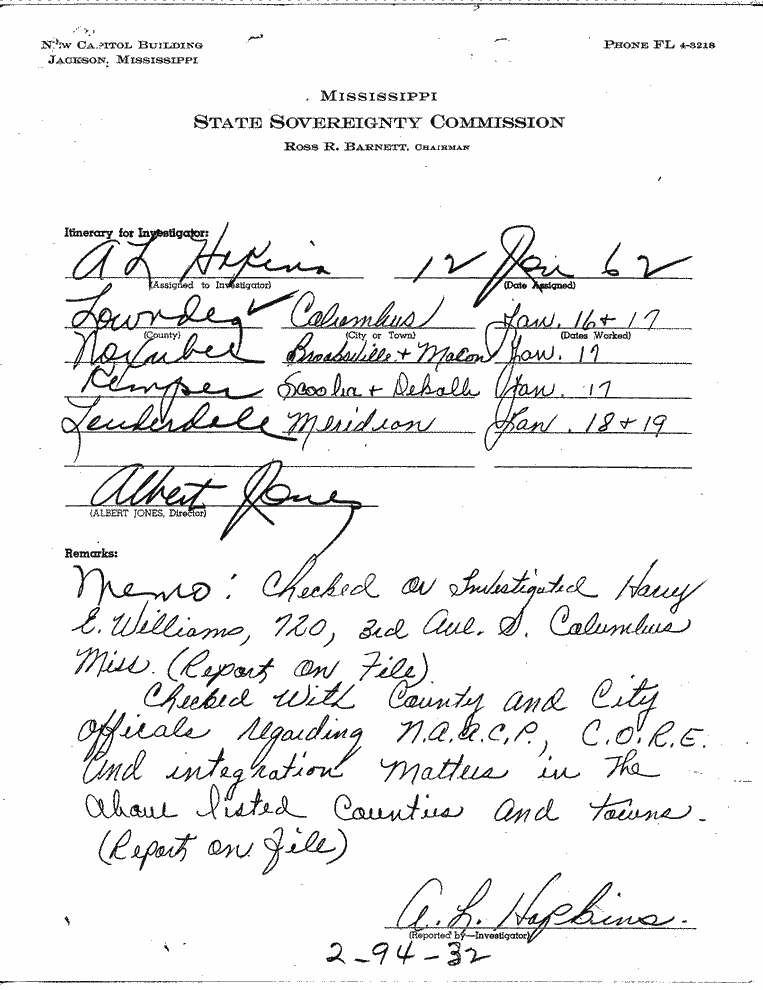 New Capitol Building
Jackson, Mississippi
Phone FL 4-3218
Mississippi
State Sovereignty Commission
Ross R. Barnett, Chairman
Itinerary for Investigator:
A L Hopkins 12 Jan 62
(Assigned to Investigator) (Date Assigned)
Lowndes ✓ Columbus Jan. 16 + 17
(County) (City or Town) (Dates Worked)
Noxubee Brooksville + Macon Jan. 17
Kemper Scooba + Dekalb Jan. 17
Lauderdale Meridian Jan. 18 + 19
Albert Jones
(ALBERT JONES, Director)
Remarks:
Memo: Checked on Investigated Harry
E. Williams, 720, 3rd Ave. S. Columbus
Miss. (Report on File)
Checked With County and City
officals regarding N.A.A.C.P., C.O.R.E.
and integration Matters in The
above listed Counties and towns.
(Report on File)
A. L. Hopkins.
(Reported by—Investigator)
2-94-32